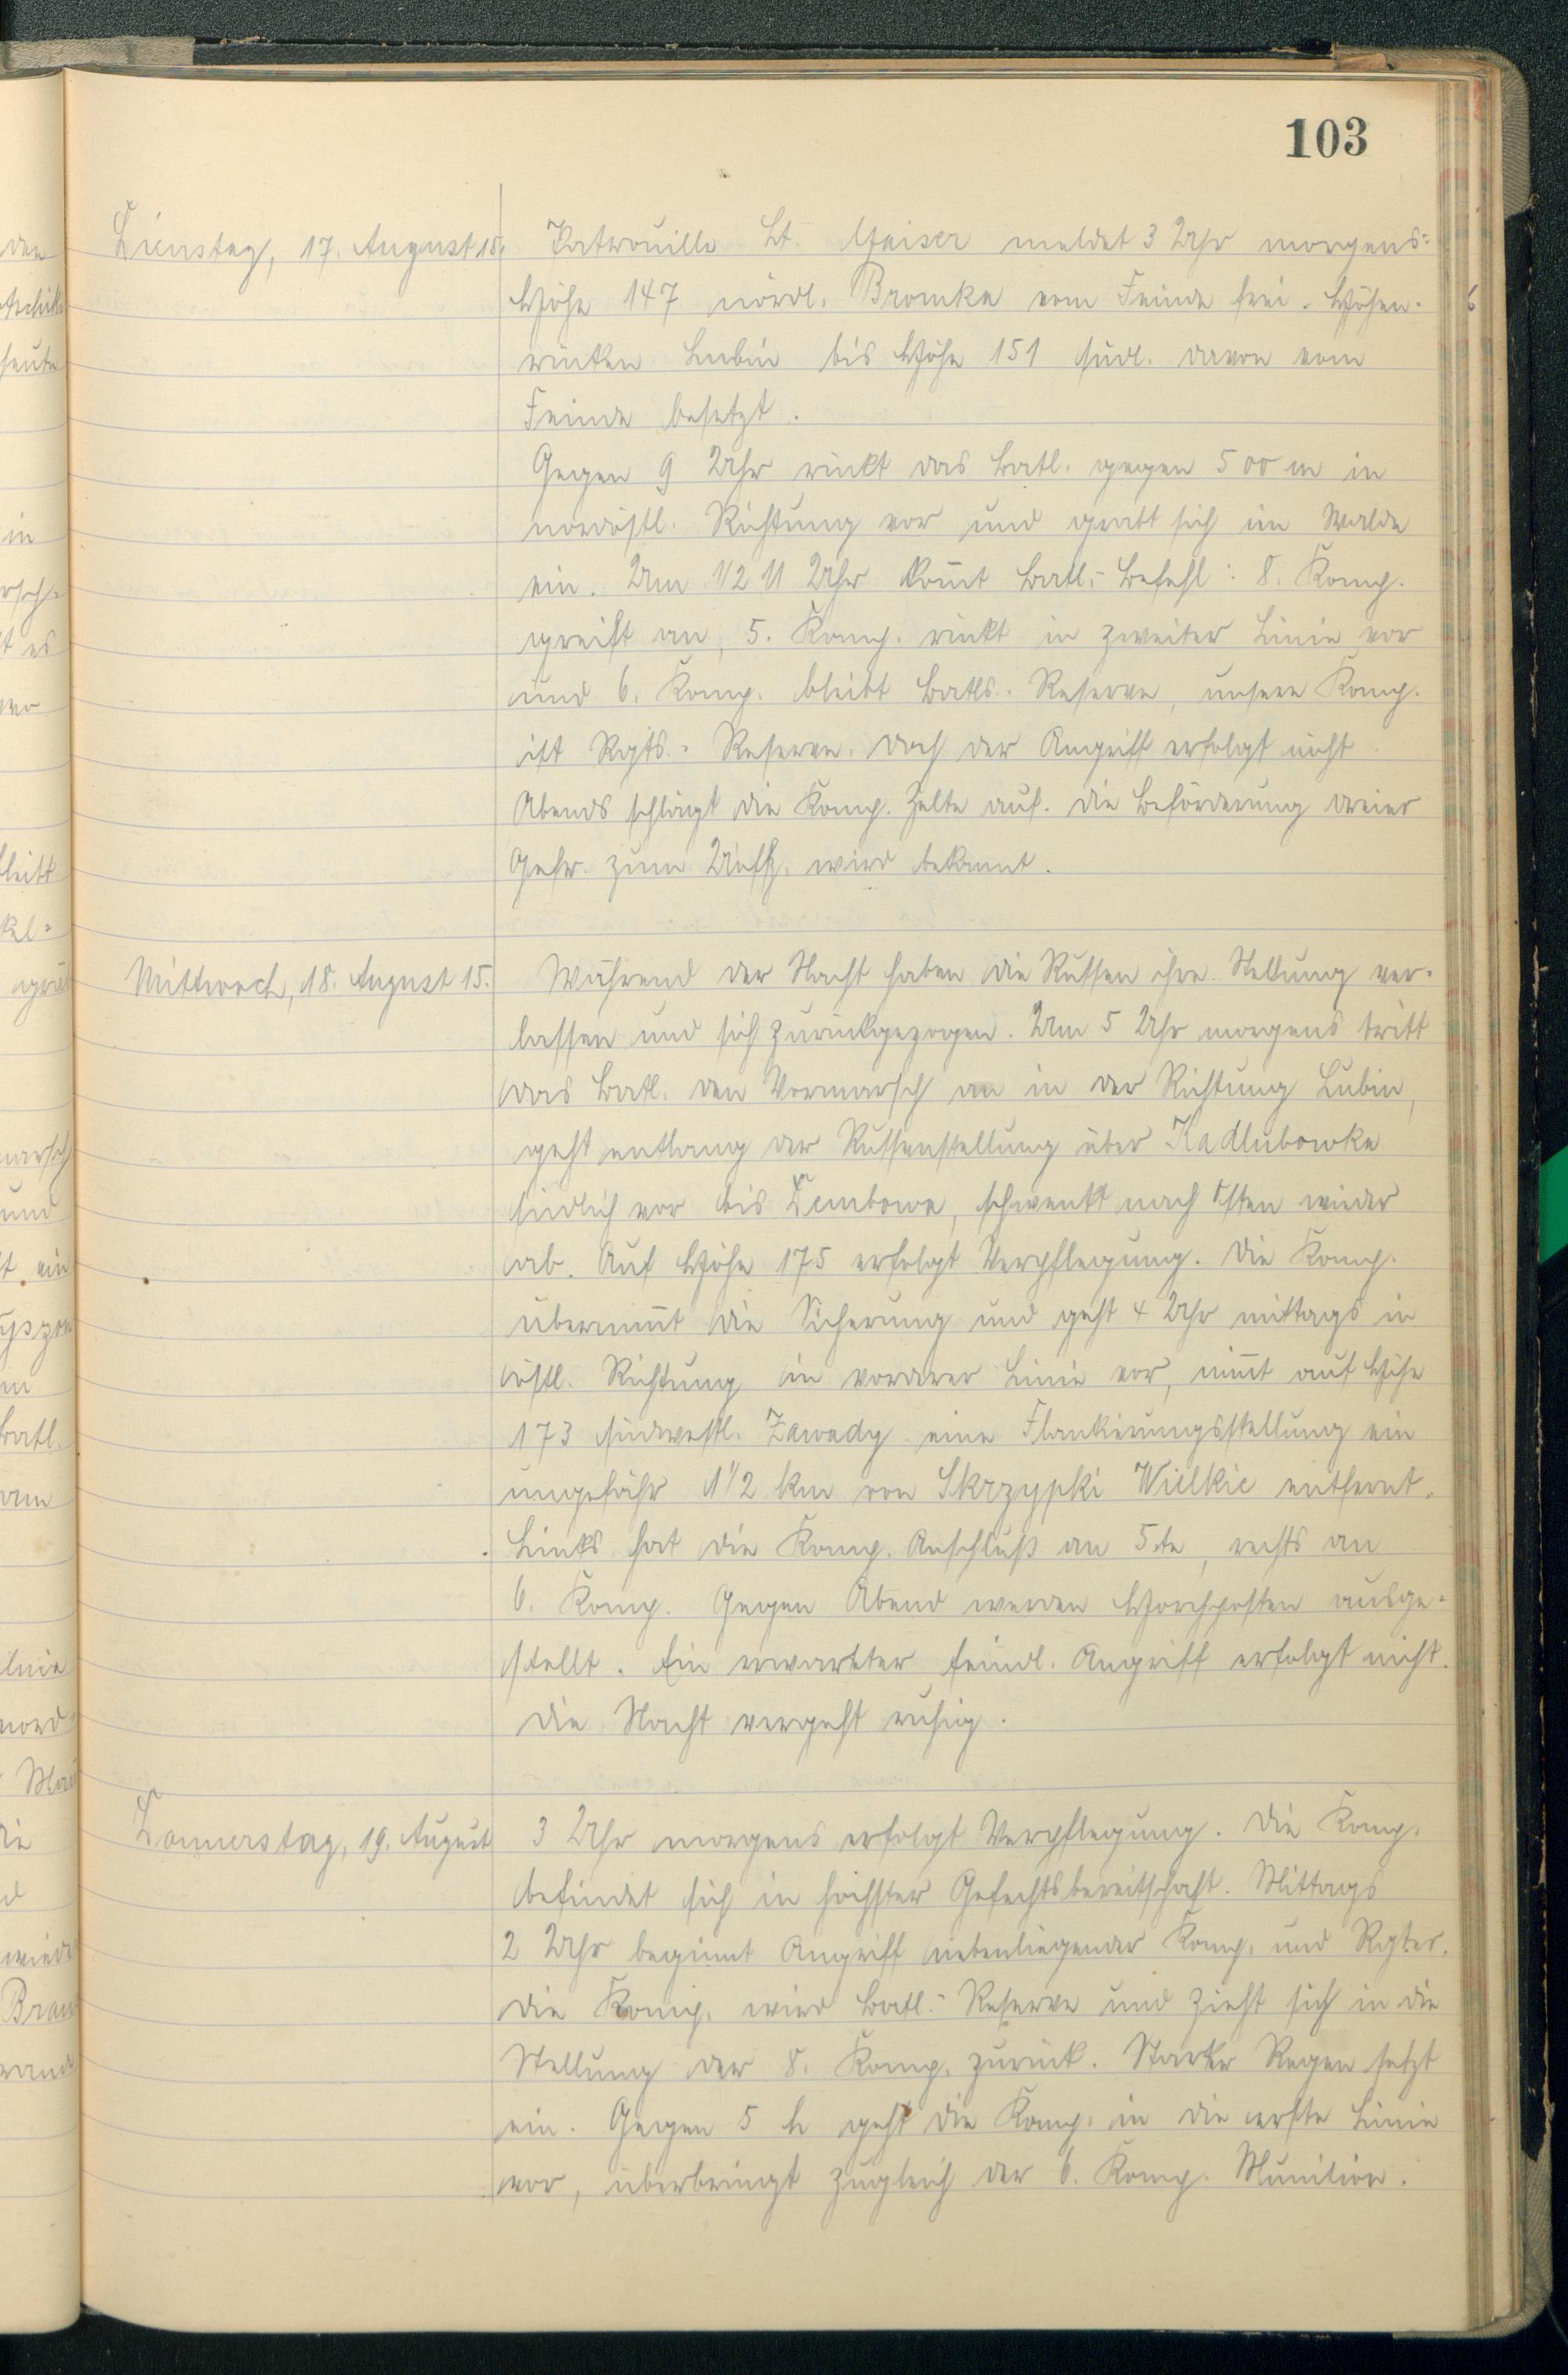 103
Dienstag, 17. August 15.
Patrouille Lt. Maiser meldet 3 Uhr morgens:
Höhe 147 nördl. Bromka vom Feinde frei. Höhen-
rücken Lubin bis Höhe 151 südl. davon vom
Feinde besetzt.
Gegen 9 Uhr rückt das Batl. gegen 500 m in
nordöstl. Richtung vor und gräbt sich im Walde
ein. Um 1/2 11 Uhr kom̅t Batl.-Befehl: 8. Komp.
greift an, 5. Komp. rückt in zweiter Linie vor
und 6. Komp. bleibt Batls.-Reserve, unsere Komp.
ist Rgts.-Reserve. Doch der Angriff erfolgt nicht
Abends schlägt die Komp. Zelte auf. Die Beförderung dreier
Gefr. zum Uoffz. wird bekannt.
Mittwoch, 18. August 15.
Während der Nacht haben die Russen ihre Stellung ver-
lassen und sich zurückgezogen. Um 5 Uhr morgens tritt
das Batl. den Vormarsch an in der Richtung Lubin,
geht entlang der Russenstellung über Kadlubowka
südlich vor bis Dembowa, schwenkt nach Osten wieder
ab. Auf Höhe 175 erfolgt Verpflegung. Die Komp.
übernim̅t die Sicherung und geht 4 Uhr mittags in
östl. Richtung in vorderer Linie vor, nim̅t auf Höhe
173 südwestl. Zawady eine Flankierungsstellung ein
ungefähr 1 1/2 km von Skrzypki Wielkie entfernt.
Links hat die Komp. Anschluß an 5.te, rechts an
6. Komp. Gegen Abend werden Horchposten ausge-
stellt. Ein erwarteter feindl. Angriff erfolgt nicht.
Die Nacht vergeht ruhig.
Donnerstag, 19. August
3 Uhr morgens erfolgt Verpflegung. Die Komp.
befindet sich in höchster Gefechtsbereitschaft. Mittags
2 Uhr beginnt Angriff nebenliegender Komp. und Rgter.
Die Komp. wird Batl.-Reserve und zieht sich in die
Stellung der 8. Komp. zurück. Starker Regen setzt
ein. Gegen 5 h geht die Komp. in die erste Linie
vor, überbringt zugleich der 6. Komp. Munition.